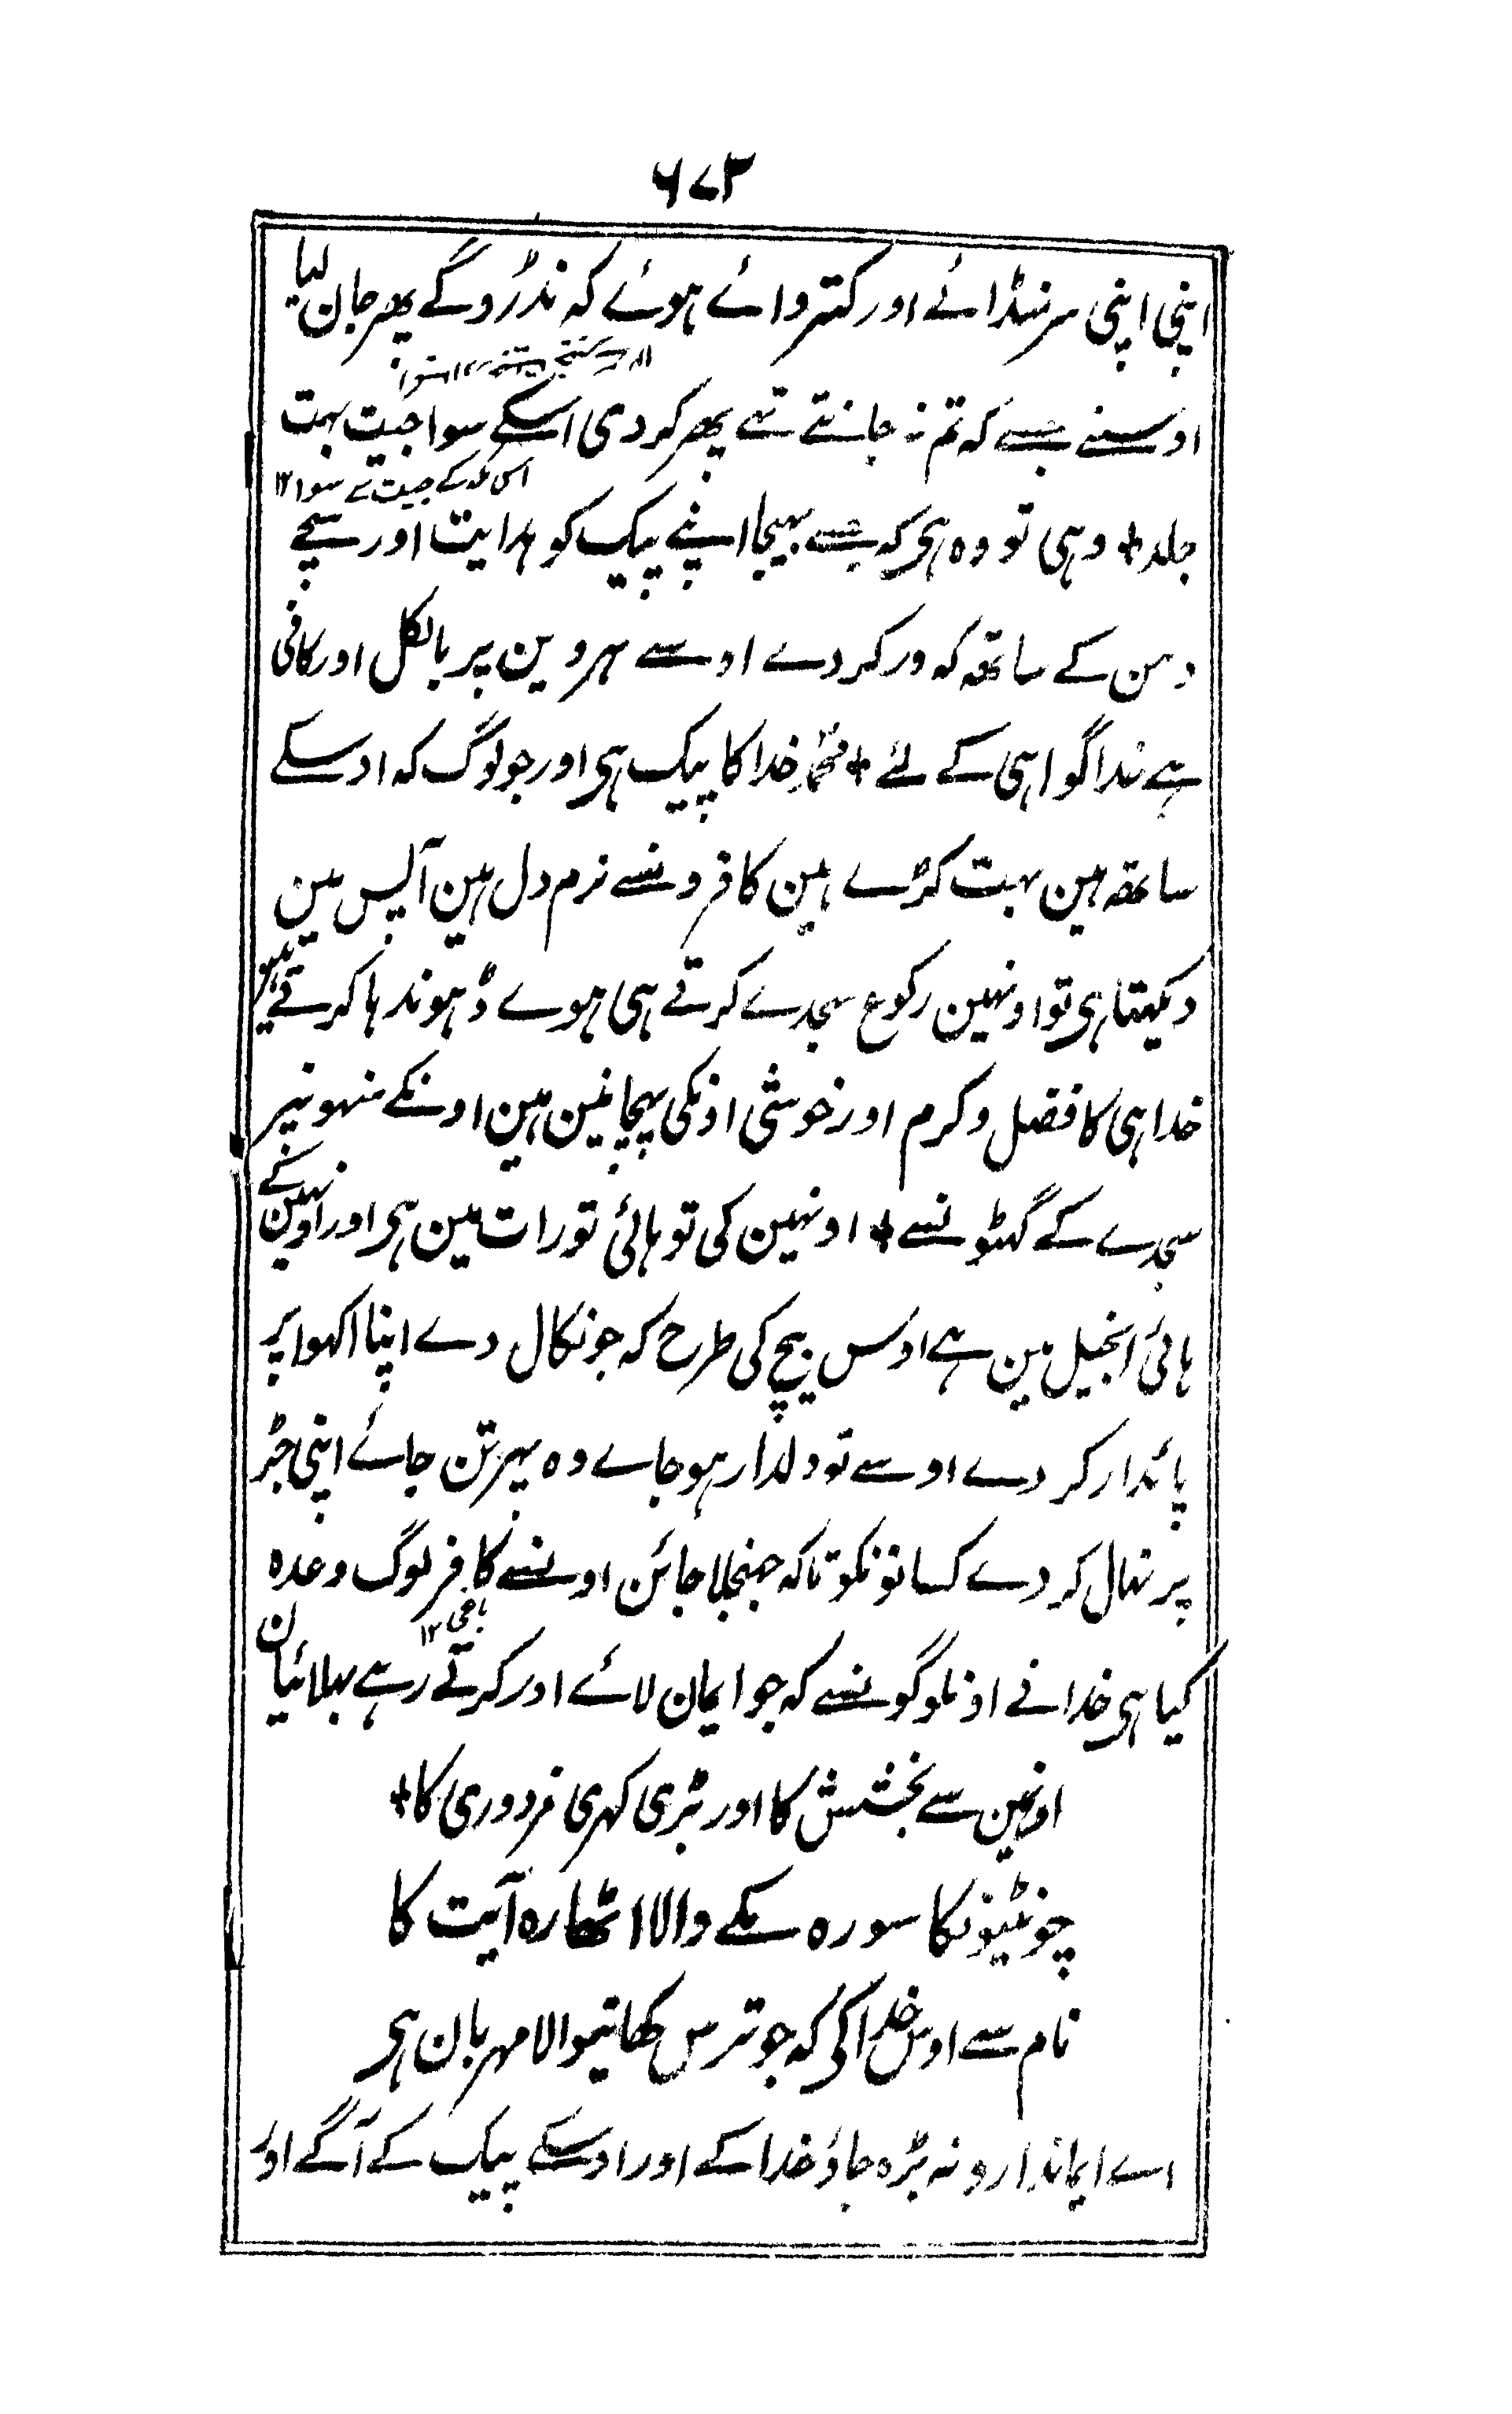 ۶۷۳
اپنی اپنی سر منڈائے اور کتروائے ہوئے کہ نڈرُوگے پھر جان لیا
اوسنے جسے کہ تم نہ جانتے تھے پھر کر دی اسکے سوا جیت بہت
اس مکہ کے جیت کے سوا ۱۲
جلد + وہی تو وہ ہی کہ جسنے بہیجا اپنے پیک کو ہدایت اور سچے
دین کے ساتھہ کہ ور کر دے اوسے ہر دین پر بالکل اور کافی
ہے خدا گواہی کے لئے + محمّد خدا کا پیک ہی اور جو لوگ کہ اوسکے
ساتھہ ہین بہت کڑے ہین کافرونسے نرم دل ہین آپس مین
دیکہتا ہی تو اونہین رکوع سجدے کرتے ہی ہوے ڈہونڈہا کرتے ہین
خدا ہی کا فضل و کرم اور خوشی اونکی پہچانین ہین اونکے منہونپر
سجدے کے گہٹونسے + اونہین کی تو ہائی تورات مین ہی اور اونہین کے
ہائی انجیل مین ہے اوس بیج کی طرح کہ جو نکال دے اپنا اکہوا پر
پائدار کر دے اوسے تو دلدار ہو جاے وہ پہر تن جائے اپنی جڑ
پر نہال کر دے کسانونکو تاکہ جہنجلا جائن اونسے کافر لوگ وعدہ
باقی ۱۲
کیا ہی خدا نے اونلوگونسے کہ جو ایمان لائے اور کرتے رہے بہلائیان
اونہین سے بخشش کا اور بڑی کہری مزدوری کا +
چونٹیونکا سورہ مکے والا اٹھارہ آیت کا
نام سے اوس خدا کی کہ جو ترس کھانیوالا مہربان ہی
اے ایماندارو نہ بڑہ جاؤ خدا کے اور اوسکے پیک کے آگے اور